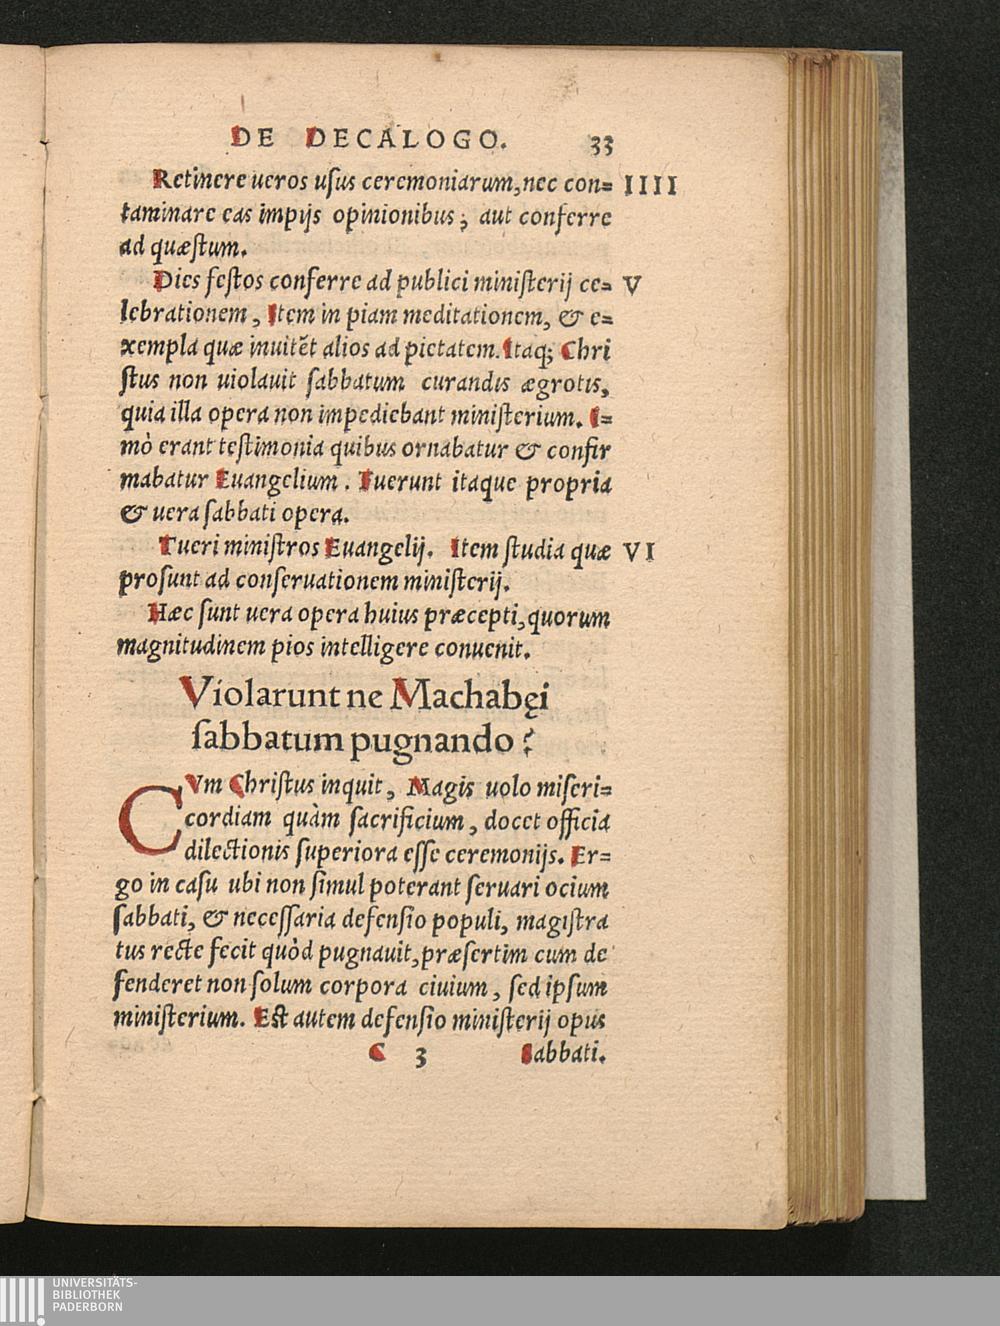 DE DECALOGO. 33
Retinere ueros uſus ceremoniarum, nec con= IIII
taminare eas impijs opinionibus; aut conferre
ad quæſtum.
Dies feſtos conferre ad publici miniſterij ce= V
lebrationem, Item in piam meditationem, & e=
xempla quæ inuitẽt alios ad pietatem. Itaq; Chri
ſtus non uiolauit ſabbatum curandis ægrotis,
quia illa opera non impediebant miniſterium. I=
mò erant teſtimonia quibus ornabatur & confir
mabatur Euangelium. Fuerunt itaque propria
& uera ſabbati opera.
Tueri miniſtros Euangelij. Item ſtudia quæ VI
proſunt ad conſeruationem miniſterij.
Hæc ſunt uera opera huius præcepti, quorum
magnitudinem pios intelligere conuenit.
Violarunt ne Machabęi
ſabbatum pugnando?
CVm Chriſtus inquit, Magis uolo miſeri=
cordiam quàm ſacrificium, docet officia
dilectionis ſuperiora eſſe ceremonijs. Er=
go in caſu ubi non ſimul poterant ſeruari ocium
ſabbati, & neceſſaria defenſio populi, magiſtra
tus recte fecit quòd pugnauit, præſertim cum de
fenderet non ſolum corpora ciuium, ſed ipſum
miniſterium. Eſt autem defenſio miniſterij opus
C 3 Sabbati.
UNIVERSITÄTS-
BIBLIOTHEK
PADERBORN